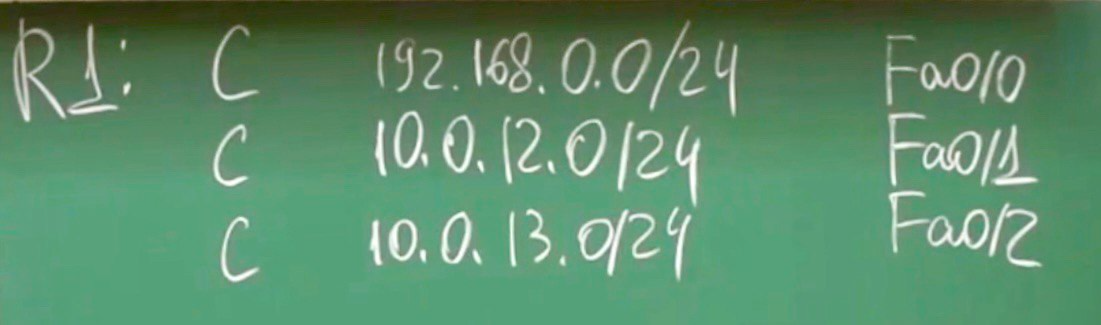 R1: C 192.168.0.0/24 Fa0/0
C 10.0.12.0/24 Fa0/1
C 10.0.13.0/24 Fa0/2